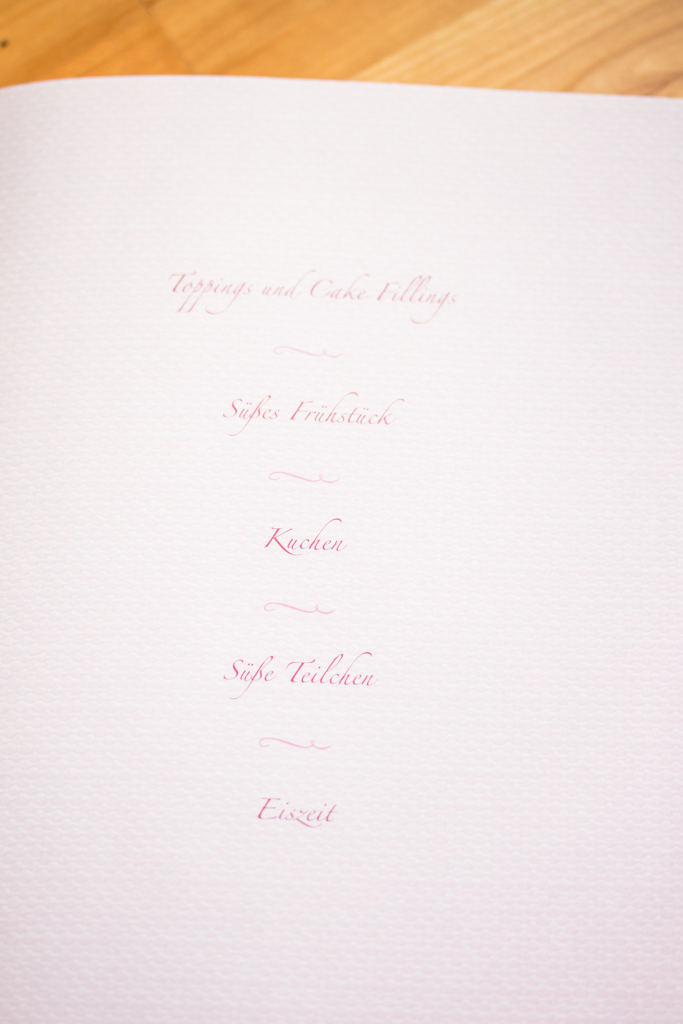 Toppings und Cake Fillings
Süßes Frühstück
Kuchen
Süße Teilchen
Eiszeit